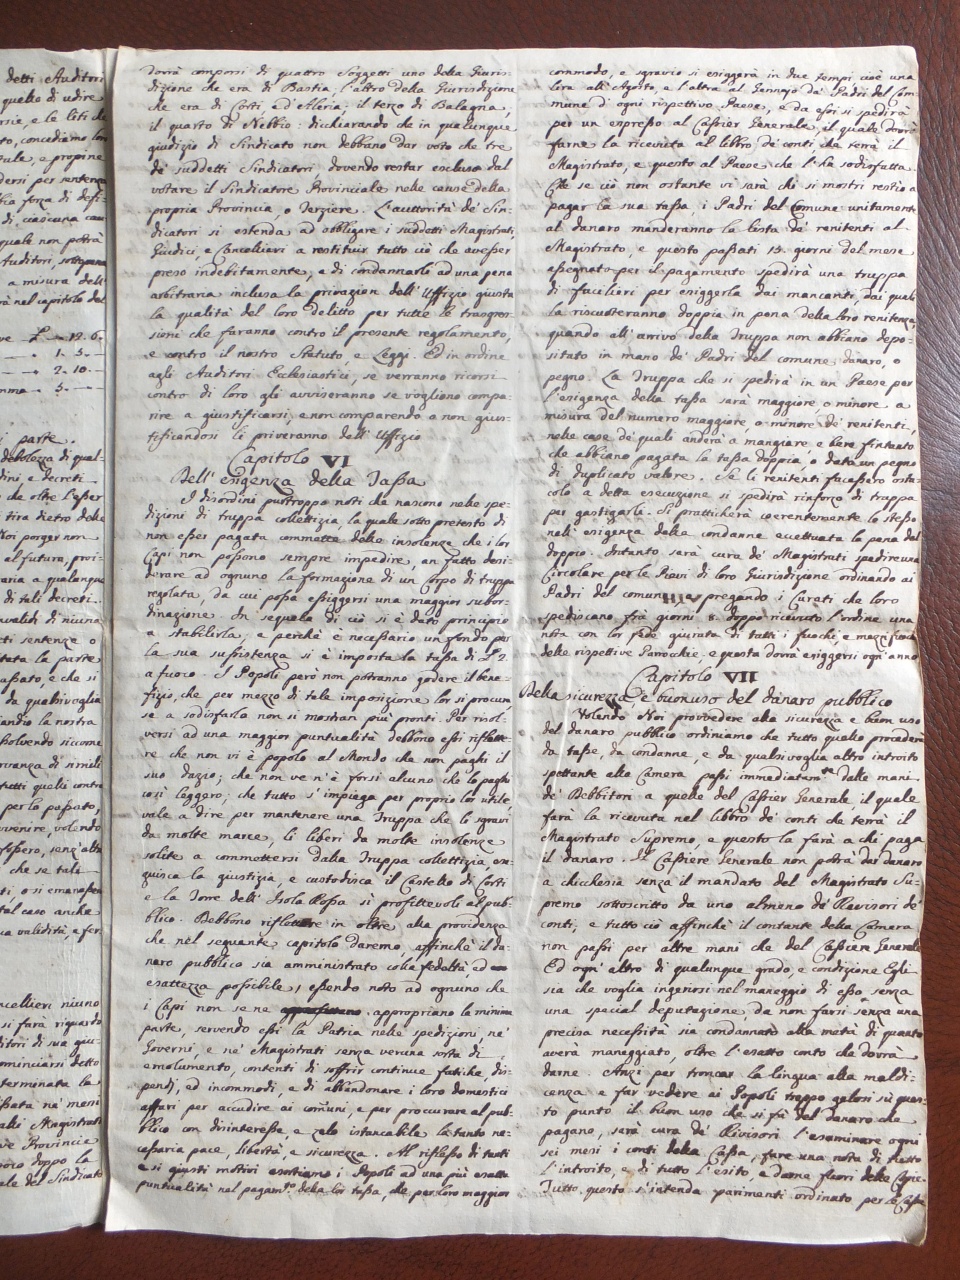 detti Auditori
quello di udire
to, concediamo, lor
quale non potrà
Auditori,
a misura dell'
rà nel capitolo del
12. 6.
1. 5.
2. 10.
5.
parte.
debolezza di qual-
dini, e decreti
che oltre l'esser
tira dietro delle
Noi porger non
al futuro, proi-
a qualunque
di tali decreti.
sentenze o
la parte
passato, e che si
da qualsivoglia
la nostra
siccome
di simili
tutti quelli contro
per lo passato,
avvenire, volendo
fossero, senz'altra
che se tali
caso anche
validità, e for
Cancellieri niuno
si farà riguardo
di sua giu-
cominciarsi detto
terminata la
ne' mesi
Magistrati
Provincia
doppo la
del Sindicato
dovrà comporsi di quattro Soggetti uno della Giuris-
dizione che era di Bastia, l'altro della Giurisdizione
che era di Corti ed Aleria, il terzo di Balagna,
il quarto di Nebbio: dichiarando che in qualunque
giudizio di Sindicato non debbano dar voto che tre
de' suddetti Sindicatori, dovendo restar escluso dal
votare il Sindicatore Provinciale nelle cause della
propria Provincia, o Terziere. L'auttorità de' Sin-
dicatori si estenda ad obbligare i suddetti Magistrati,
Giudici, e Cancellieri a restituir tutto ciò che avesser
preso indebitamente, e di condannarli ad una pena
arbitraria inclusa la privazion dell'Uffizio giusta
la qualità del loro delitto per tutte le trasgres-
sioni che faranno contro il presente regolamento,
e contro il nostro Statuto, e Leggi. Ed in ordine
agli Auditori Ecclesiastici, se verranno ricorsi
contro di loro gli avviseranno se vogliono compa-
rire a giustificarsi, e non comparendo o non gius-
tificandosi li priveranno dell'Uffizio
Capitolo VI
Dell'esigenza della Tassa
I disordini purtroppo noti che nascono nelle spe-
dizioni di truppa collettizia, la quale sotto pretesto di
non esser pagata commette delle insolenze che i lor
Capi non possono sempre impedire, an fatto desi-
derare ad ognuno la formazione di un Corpo di truppa
regolata, da cui possa esiggersi una maggior subor-
dinazione. In sequela di ciò si è dato principio
a stabilirla, e perchè è necessario un fondo per
la sua sussistenza si è imposta la tassa di L. 2
a fuoco. I Popoli però non potranno godere il bene-
fizio, che per mezzo di tale imposizione lor si procura
se a sodisfarlo non si mostran più pronti. Per risol-
versi ad una maggior puntualità debbono essi riflette-
re che non vi è popolo al Mondo che non paghi il
suo dazio; che non ve n'è forsi alcuno che lo paghi
così leggero; che tutto s'impiega per proprio lor utile,
vale a dire per mantenere una Truppa che li sgravi
da molte marce, li liberi da molte insolenze
solite a commettersi dalla Truppa collettizia, ese-
guisca la giustizia, e custodisca il Castello di Corti
e la Torre dell'Isola Rossa sì profittevoli al pub-
blico. Debbono riflettere in oltre alla providenza
che nel seguente capitolo daremo, affinchè il da-
naro pubblico sia amministrato colla fedeltà, ed
esattezza possibile, essendo noto ad ognuno che
i Capi non se ne appropriano la minima
parte, servendo essi la Patria nelle spedizioni, ne'
Governi, e ne' Magistrati senza veruna sorta di
emolumento, contenti di soffrir continue fatiche, dis-
pendj, ed incommodi, e di abbandonare i loro domestici
affari per accudire ai comuni, e per proccurare al pub-
blico con disinteresse e zelo istancabile la tanto ne-
cessaria pace, libertà, e sicurezza. Al riflesso di tanti
e sì giusti motivi esortiamo i Popoli ad una più esatta
puntualità nel pagam.to della lor tassa, che per loro maggior
commodo, e sgravio si esiggerà in due tempi cioè una
Lira all'Agosto, e l'altra al Gennajo da' Padri del Com-
mune d'ogni rispettivo Paese, e da essi si spedirà
per un espresso al Cassier Generale, il quale dovrà
farne la ricevuta al libro de' conti che terrà il
Magistrato, e questo al Paese che l'ha sodisfatta.
Che se ciò non ostante vi sarà chi si mostri restio a
pagar la sua tassa, i Padri del Comune unitamente
al danaro manderanno la lista de' renitenti al
Magistrato, e questo passati 15 giorni del mese
assegnato per il pagamento spedirà una truppa
di fucilieri per esiggerla dai mancanti, dai quali
la riscuoteranno doppia in pena della loro renitenza,
quando all'arrivo della Truppa non abbiano depo-
sitato in mano de' Padri del comune danaro, o
pegno. La Truppa che si spedirà in un Paese per
l'esigenza della tassa sarà maggiore, o minore a
misura del numero maggiore, o minore de' renitenti,
nelle case de' quali anderà a mangiare, e bere fintanto
che abbiano pagata la tassa doppia, o data un pegno
di duplicato valore. Se li renitenti facessero osta-
colo a detta esecuzione si spedirà rinforzo di truppa
per gastigarli. Si pratticherà coerentemente lo stesso
nell'esigenza delle condanne eccettuata la pena del
doppio. Intanto sarà cura de' Magistrati spedire una
Circolare per le Pievi di loro Giurisdizione ordinando ai
Padri del comun pregando i Curati che loro
spediscano frà giorni 8 doppo ricevuto l'ordine una
nota con lor fede giurata di tutti i fuochi, e mezzi fuochi
delle rispettive Parrocchie. e questa dovrà esiggersi ogn'anno
Capitolo VII
Della sicurezza, e buon uso del danaro pubblico
Volendo Noi provvedere alla sicurezza e buon uso
del danaro pubblico ordiniamo che tutto quello procederà
da tasse, da condanne, e da qualsivoglia altro introito
spettante alla Camera passi immediatam.te dalle mani
de' Debbitori a quelle del Cassier Generale, il quale
farà la ricevuta nel libro de' conti che terrà il
Magistrato Supremo, e questo la farà a chi paga
il danaro. Il Cassiere Generale non potrà dar danaro
a chicchesia senza il mandato del Magistrato Su-
premo sottoscritto da uno almeno de' Revisori de'
conti, e tutto ciò affinchè il contante della Camera
non passi per altre mani che del Cassiere Generale
Ed ogn'altro di qualunque grado, e condizione Egli
sia che voglia ingerirsi nel maneggio di esso senza
una special deputazione, da non farsi senza una
precisa necessità sia condannato alla metà di quanto
averà maneggiato, oltre l'esatto conto che dovrà
darne. Anzi per troncar la lingua alla maldi-
cenza e far vedere ai Popoli troppo gelosi sù ques-
to punto il buon uso che si fà del danaro che
pagano, sarà cura de' Revisori l'esaminare ogni
sei mesi i conti della Cassa, fare una nota di tutto
l'introito, e di tutto l'esito, e darne fuori delle Copie.
Tutto questo s'intenda parimenti ordinato per le Casse